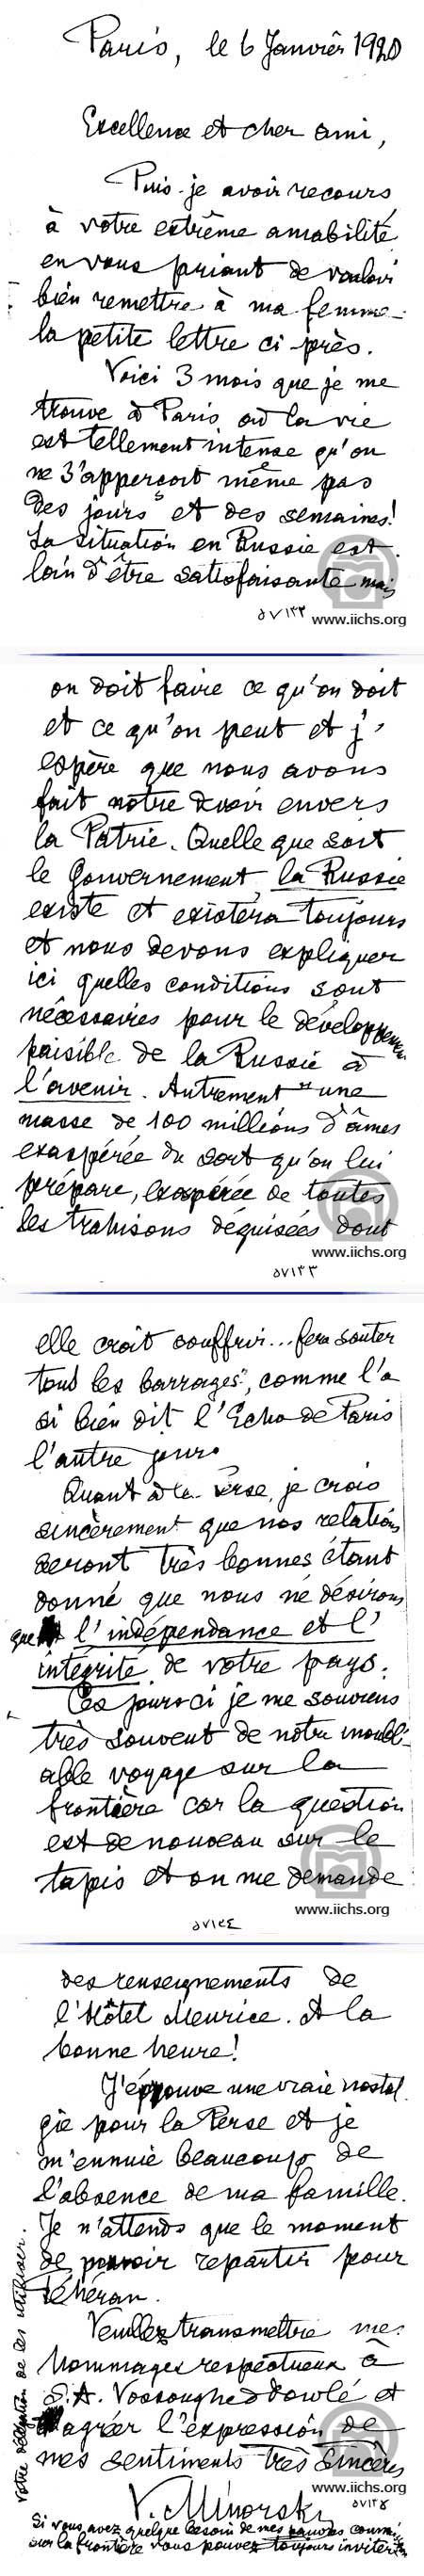 Paris, le 6 Janvier 1920
Excellence et cher ami,
Puis-je avoir recours
à votre extrême amabilité
en vous priant de vouloir
bien remettre à ma femme
la petite lettre ci-près.
Voici 3 mois que je me
trouve à Paris où la vie
est tellement intense qu'on
ne s'apperçoit même pas
des jours et des semaines!
La situation en Russie est
loin d'être satisfaisante mais
۵۷۱۳۳
www.iichs.org
on doit faire ce qu'on doit
et ce qu'on peut et j'
espère que nous avons
fait notre devoir envers
la Patrie. Quelle que soit
le Gouvernement, la Russie
existe et existera toujours
et nous devons expliquer
ici quelles conditions sont
nécessaires pour le développement
paisible de la Russie à
l'avenir. Autrement "une
masse de 100 millions d'âmes
exaspérée du sort qu'on lui
prépare, exaspérée de toutes
les trahisons déguisées dont
www.iichs.org
۵۷۱۳۳
elle croit souffrir... fera sauter
tous les barrages", comme l'a
si bien dit l'Echo de Paris
l'autre jour.
Quant à la Perse, je crois
sincèrement que nos relations
seront très bonnes étant
donné que nous ne désirons
que l'indépendance et l'
intégrité de votre pays.
Ces jours ci je me souviens
très souvent de notre inoubli-
able voyage sur la
frontière car la question
est de nouveau sur le
tapis et on me demande
www.iichs.org
۵۷۱۳٤
des renseignements de
l'Hôtel Meurice. A la
bonne heure!
J'éprouve une vraie nostal
gie pour la Perse et je
m'ennuie beaucoup de
l'absence de ma famille.
Je n'attends que le moment
de pouvoir repartir pour
Téhéran.
Veuillez transmettre mes
hommages respectueux à
S.A. Vossoughed Dowlé et
agréer l'expression de
mes sentiments très sincères
www.iichs.org
V. Minorski
۵۷۱۳٤
Si vous avez quelque besoin de mes
sur la frontière vous pouvez toujours inviter
votre délégation de les utiliser.